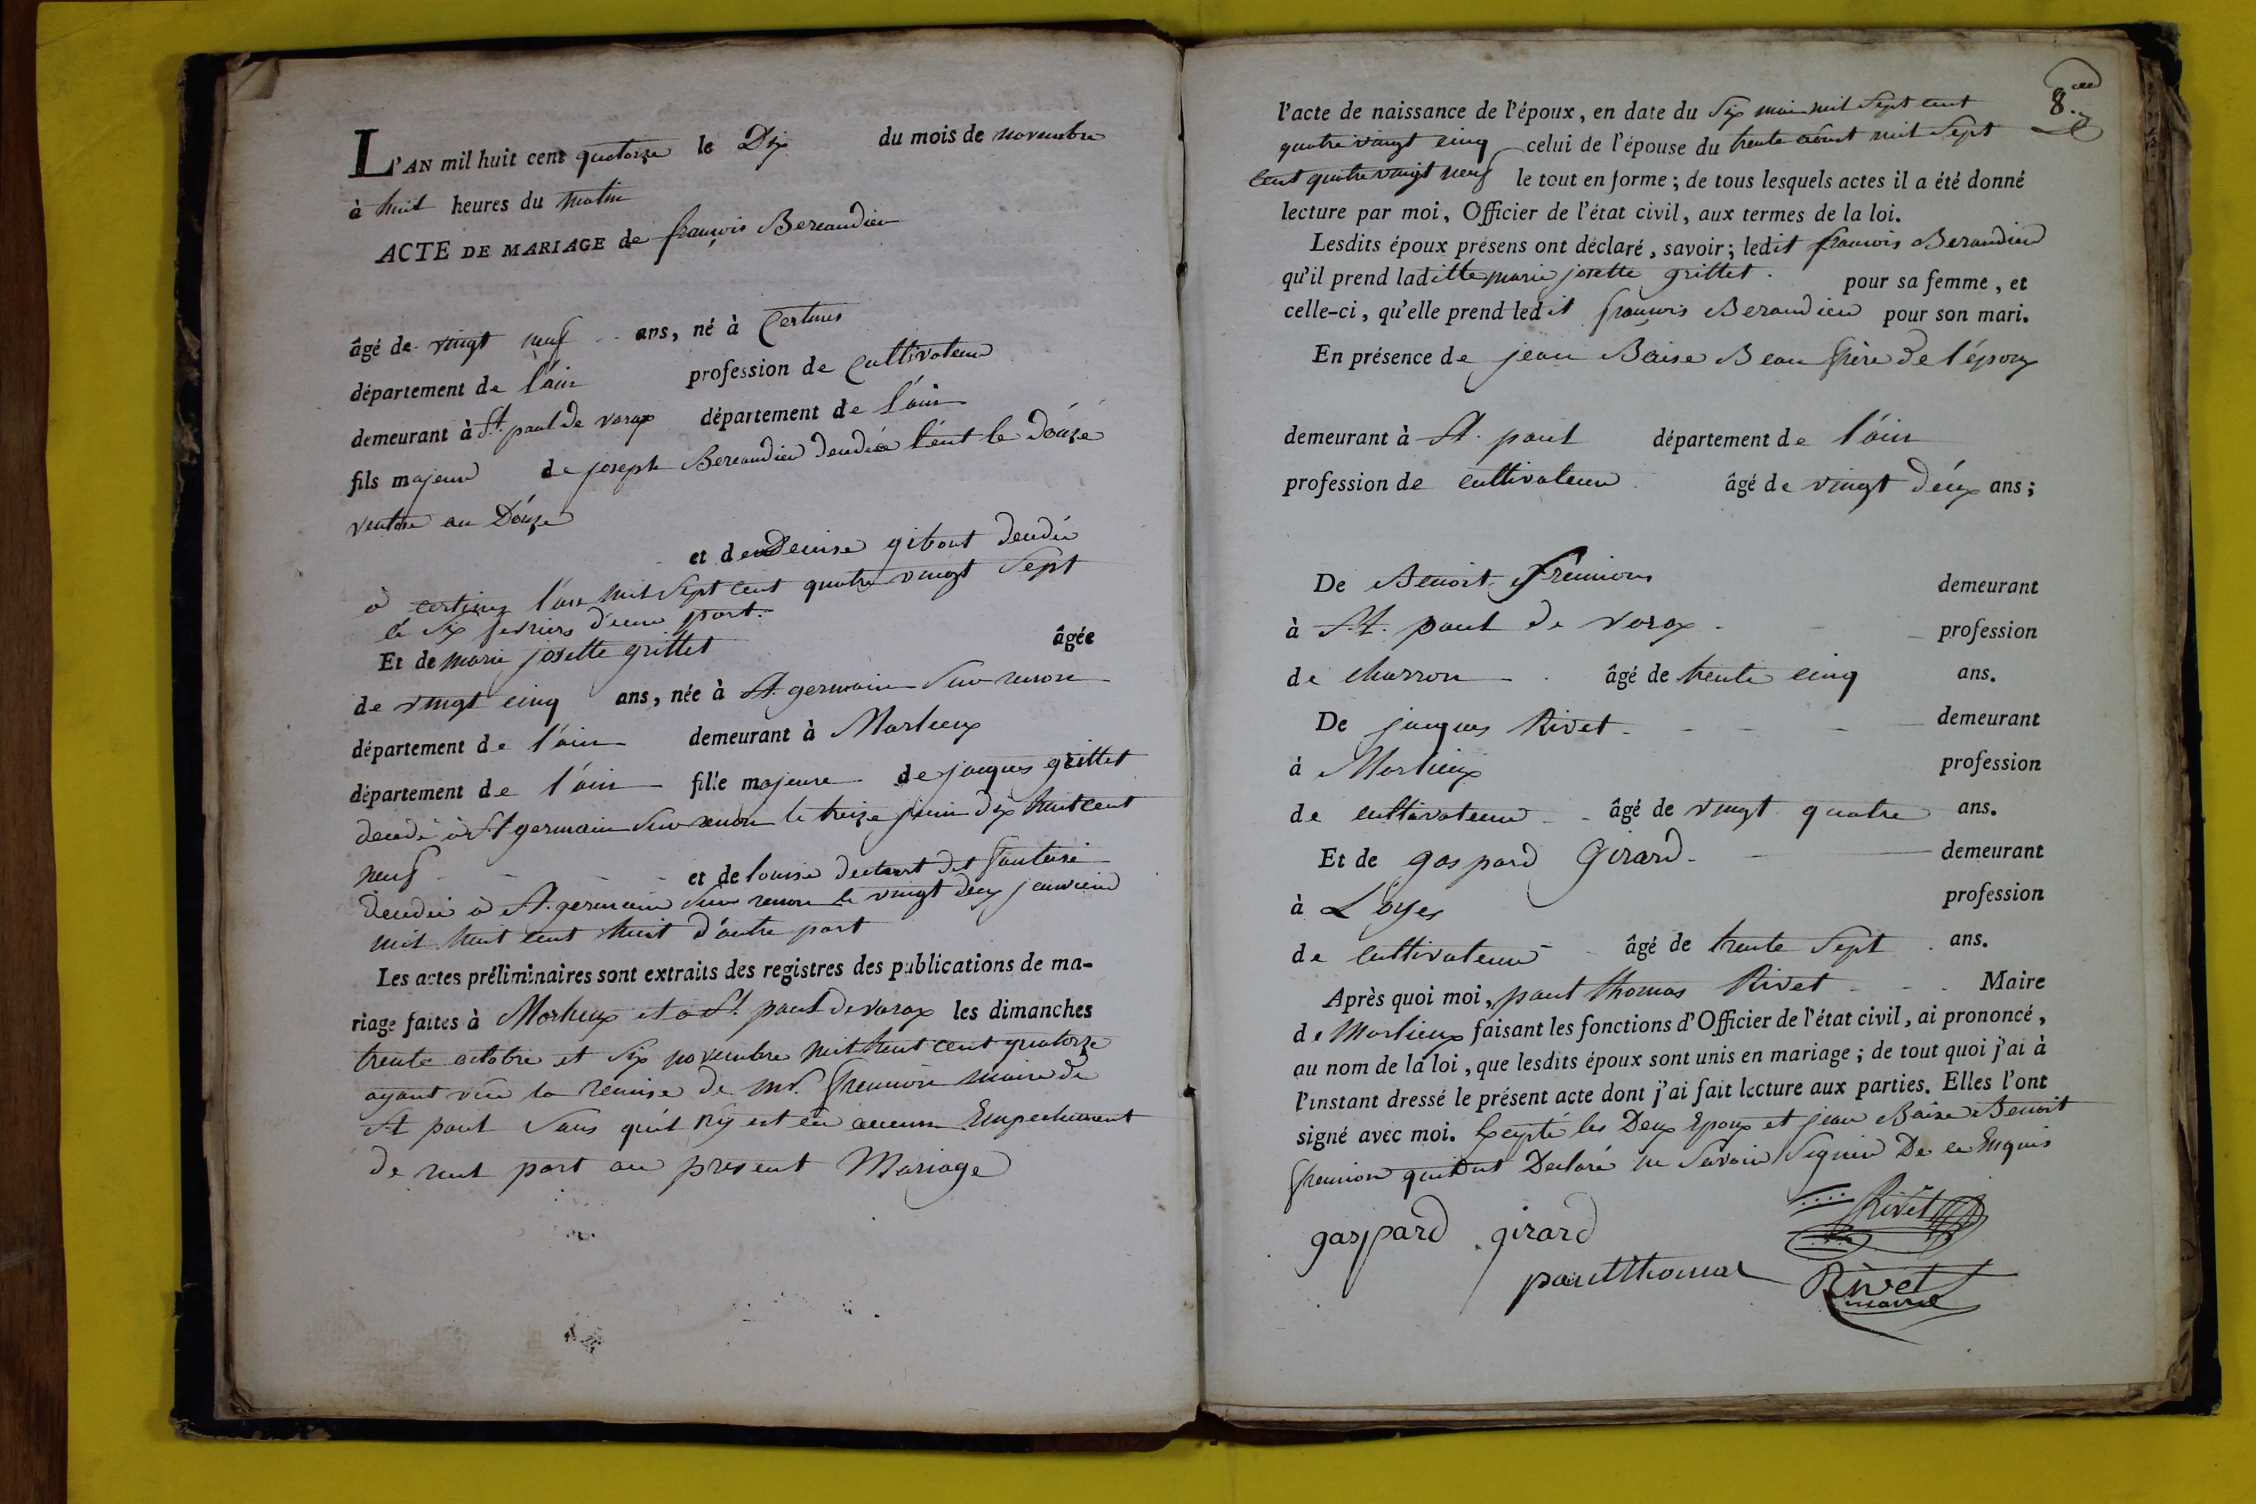 L'AN mil huit cent quatorze le Dix du mois de novembre
à huit heures du matin
ACTE DE MARIAGE de françois Bereaudier
âgé de vingt neuf ans, né à Certines
département de l'ain profession de Cultivateur
demeurant à St. paul de varax département de l'ain
fils majeur de joseph Bereaudier l'ent le douze
ventose an Douze
et de Denise gibout
à certines l'an mil Sept Cent quatre vingt Sept
le Six fevriers d'une part.
Et de marie josette grillet âgée
de vingt cinq ans, née à St. germain Sur renon
département de l'ain demeurant à Marlieux
département de l'ain fille majeure de jacques grillet
à St germain Sur renon le treize juin dix huit cent
neuf et de louise
à St. germain Sur renon le vingt deux janvier
mil huit cent huit d'autre part
Les actes préliminaires sont extraits des registres des publications de ma-
riage faites à Marlieux et à St. paul de varax les dimanches
trente octobre et Six novembre mil huit cent quatorze
ayant vue la remise de mr. freminon maire de
St paul Sans qu'il n'y est eu aucun Empechement
de nul part au present Mariage
8.me
l'acte de naissance de l'époux, en date du Six mai mil Sept cent
quatre vingt cinq celui de l'épouse du trente aout mil Sept
Cent quatre vingt neuf le tout en forme; de tous lesquels actes il a été donné
lecture par moi, Officier de l'état civil, aux termes de la loi.
Lesdits époux présens ont déclaré, savoir; ledit françois Beraudier
qu'il prend laditte marie josette grillet. pour sa femme, et
celle-ci, qu'elle prend ledit françois Beraudier pour son mari.
En présence de jean Baise Beau frère de l'époux
demeurant à St. paul département de l'ain
profession de cultivateur âgé de vingt deux ans;
De Benoit freminon demeurant
à St. paul de varax profession
de charron âgé de trente cinq ans.
De jacques Rivet demeurant
à Marlieux profession
de cultivateur âgé de vingt quatre ans.
Et de gaspard Girard demeurant
à Loyes profession
de cultivateur âgé de trente Sept ans.
Après quoi moi, paul thomas Rivet Maire
de Marlieux faisant les fonctions d'Officier de l'état civil, ai prononcé,
au nom de la loi, que lesdits époux sont unis en mariage; de tout quoi j'ai à
l'instant dressé le présent acte dont j'ai fait lecture aux parties. Elles l'ont
signé avec moi. Excepté les Deux Epoux et jean Baise Benoit
freminon qui ont Declaré ne Savoir Signer De ce Enquis
Rivet
gaspard girard
paul thomas Rivet
maire